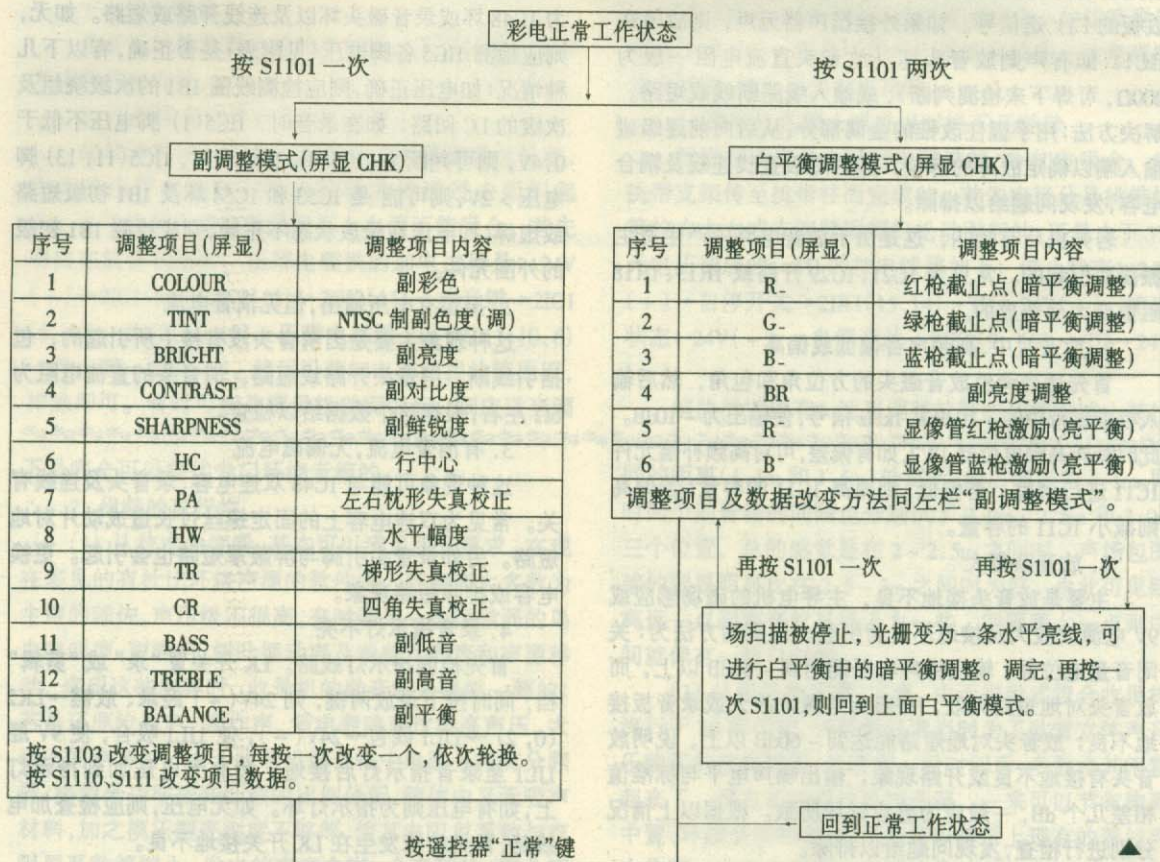 彩电正常工作状态
按 S1101 一次
按 S1101 两次
副调整模式(屏显 CHK)
白平衡调整模式(屏显 CHK)
序号 调整项目(屏显) 调整项目内容
1 COLOUR 副彩色
2 TINT NTSC 制副色度(调)
3 BRIGHT 副亮度
4 CONTRAST 副对比度
5 SHARPNESS 副鲜锐度
6 HC 行中心
7 PA 左右枕形失真校正
8 HW 水平幅度
9 TR 梯形失真校正
10 CR 四角失真校正
11 BASS 副低音
12 TREBLE 副高音
13 BALANCE 副平衡
按 S1103 改变调整项目,每按一次改变一个,依次轮换。
按 S1110、S111 改变项目数据。
序号 调整项目(屏显) 调整项目内容
1 R- 红枪截止点(暗平衡调整)
2 G- 绿枪截止点(暗平衡调整)
3 B- 蓝枪截止点(暗平衡调整)
4 BR 副亮度调整
5 D- 显像管红枪激励(亮平衡)
6 B- 显像管蓝枪激励(亮平衡)
调整项目及数据改变方法同左栏“副调整模式”。
再按 S1101 一次
再按 S1101 一次
场扫描被停止,光栅变为一条水平亮线,可
进行白平衡中的暗平衡调整。调完,再按一
次 S1101,则回到上面白平衡模式。
回到正常工作状态
按遥控器“正常”键